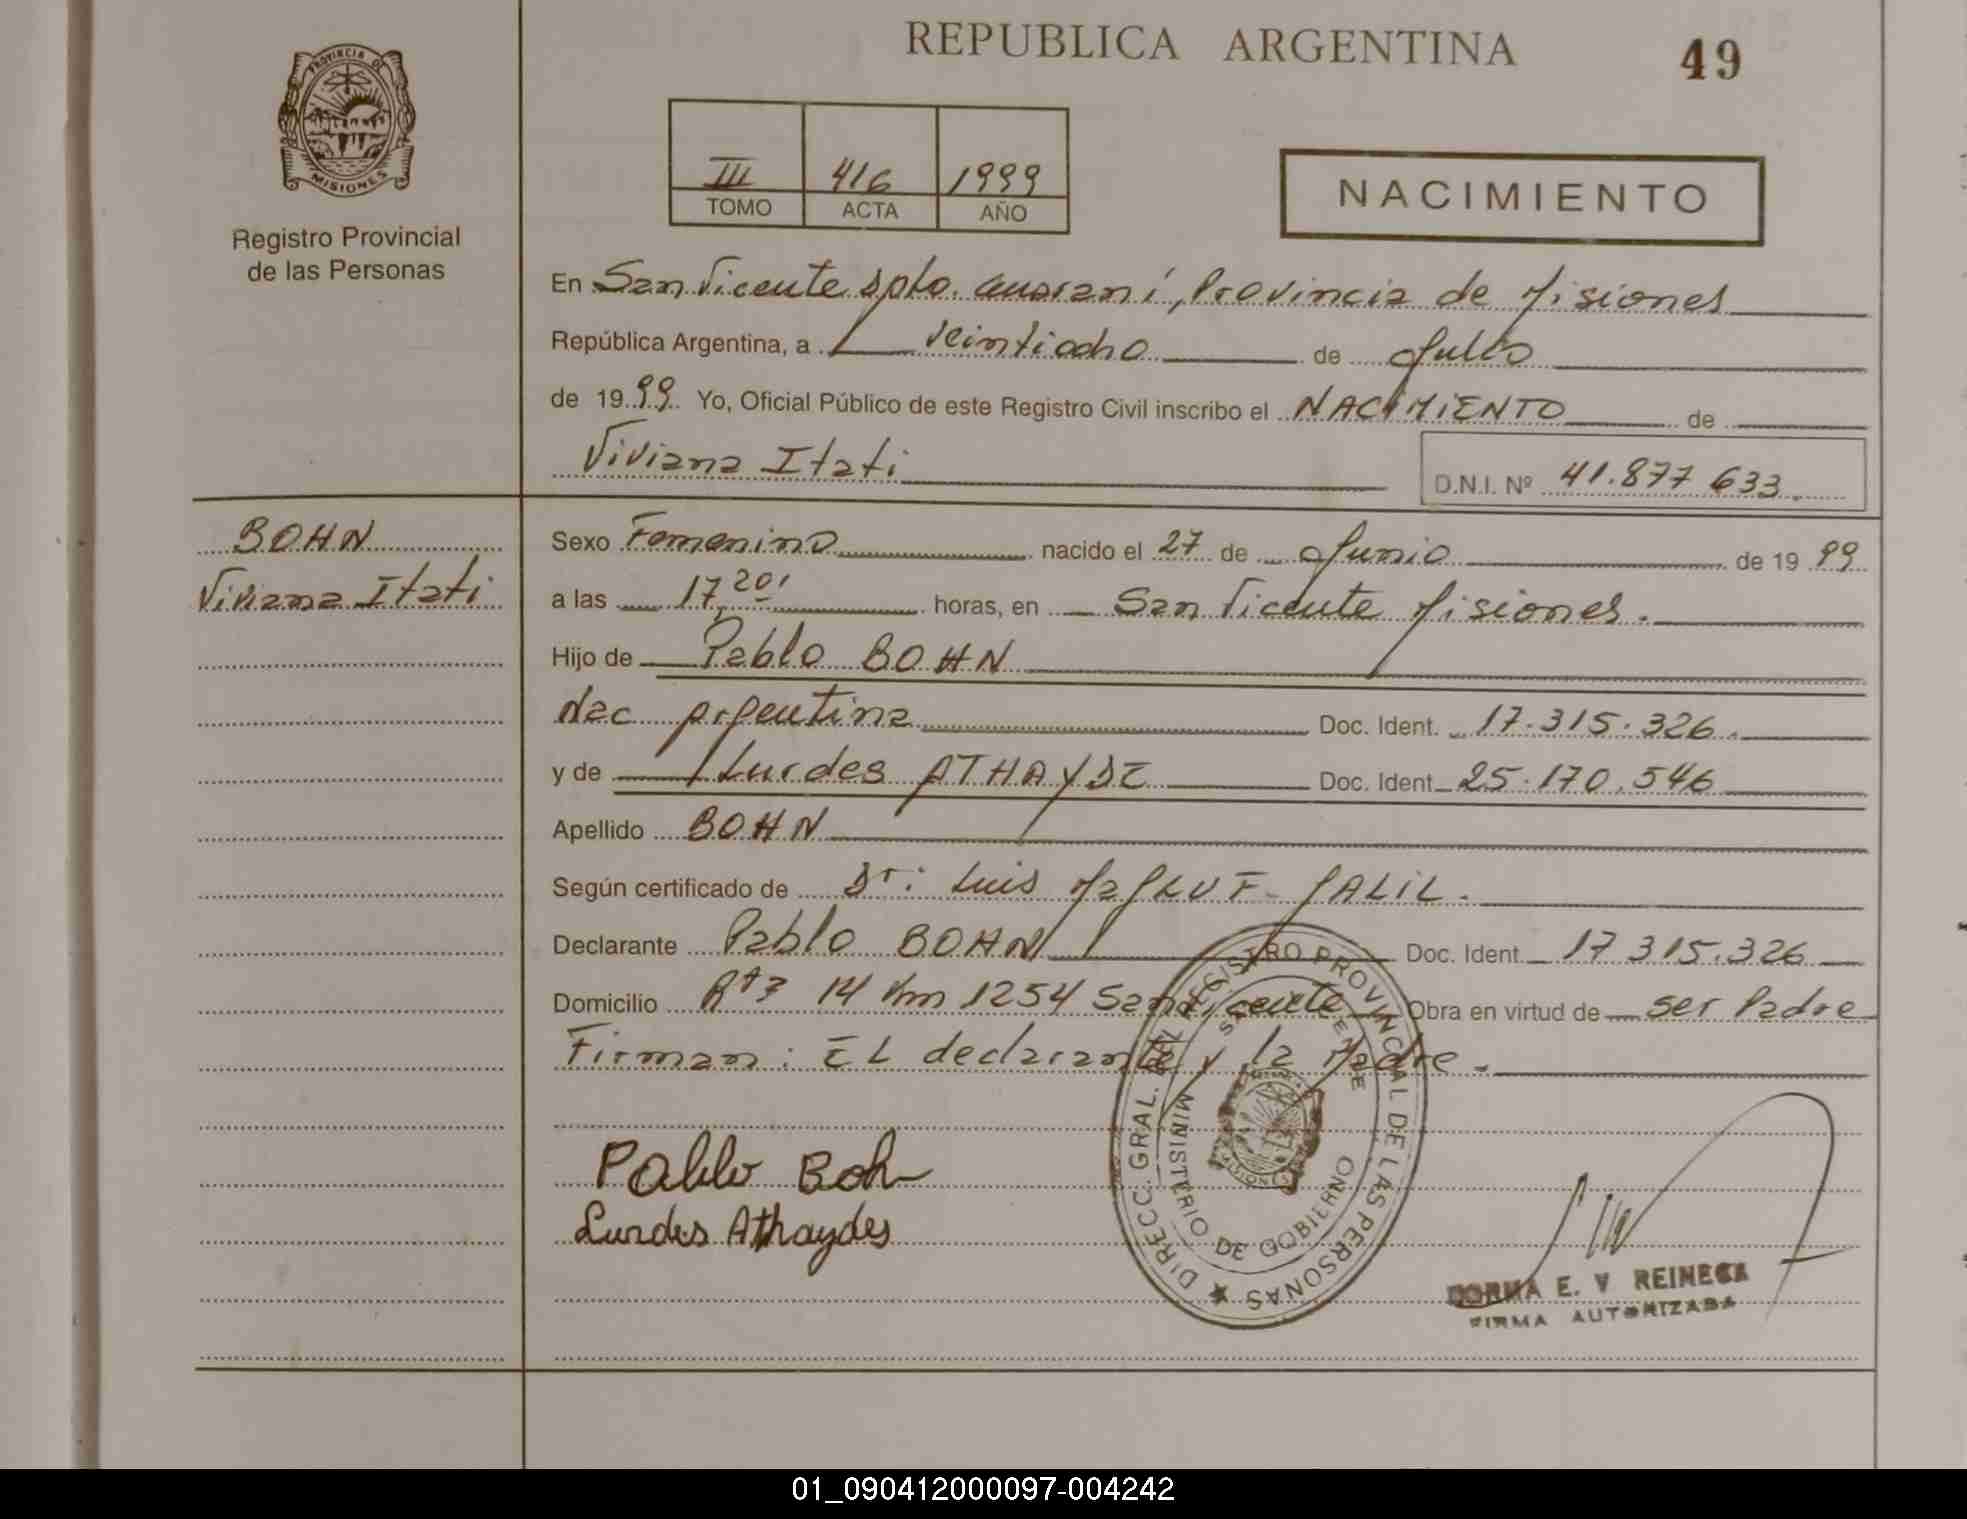 REPUBLICA ARGENTINA
49
PROVINCIA DE
MISIONES
Registro Provincial
de las Personas
III 416 1999
TOMO ACTA AÑO
NACIMIENTO
En San Vicente Dpto. Guaraní, Provincia de Misiones
República Argentina, a Veintiocho de Julio
de 1999 Yo, Oficial Público de este Registro Civil inscribo el NACIMIENTO de
Viviana Itati
D.N.I. Nº 41.877 633.
BOHN
Viviana Itati
Sexo Femenino nacido el 27 de Junio de 1999
a las 17,20' horas, en San Vicente Misiones.
Hijo de Pablo BOHN
Nac Argentina Doc. Ident. 17.315.326.
y de Lurdes ATHAYDE Doc. Ident 25.170.546
Apellido BOHN
Según certificado de Dr: Luis JALIL.
Declarante Pablo BOHN Doc. Ident 17 315.326
Domicilio 14 Km 1254 San Vicente Obra en virtud de ser Padre
Firman: EL declarante y la Madre.
Pablo Bohn
Lurdes Athaydes
DIRECC. GRAL. DEL REGISTRO PROVINCIAL DE LAS PERSONAS
MINISTERIO DE GOBIERNO
SAN VICENTE
E. V REINECK
FIRMA AUTORIZADA
01_090412000097-004242